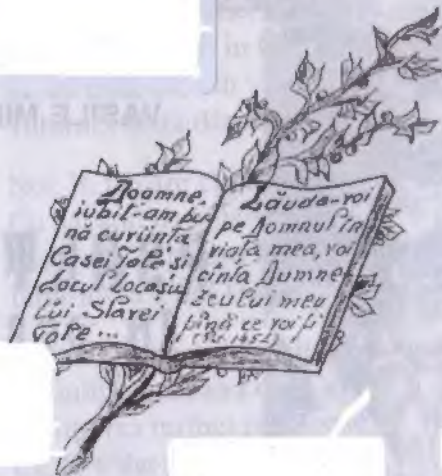 VASILE MI
Doamne,
iubit-am bu
nă cuviința
Casei Tale și
Locul Locașu
lui Slavei
Tale...
Lăuda-voi
pe Domnul în
viața mea, voi
cînta Dumne-
zeului meu
pînă ce voi fi